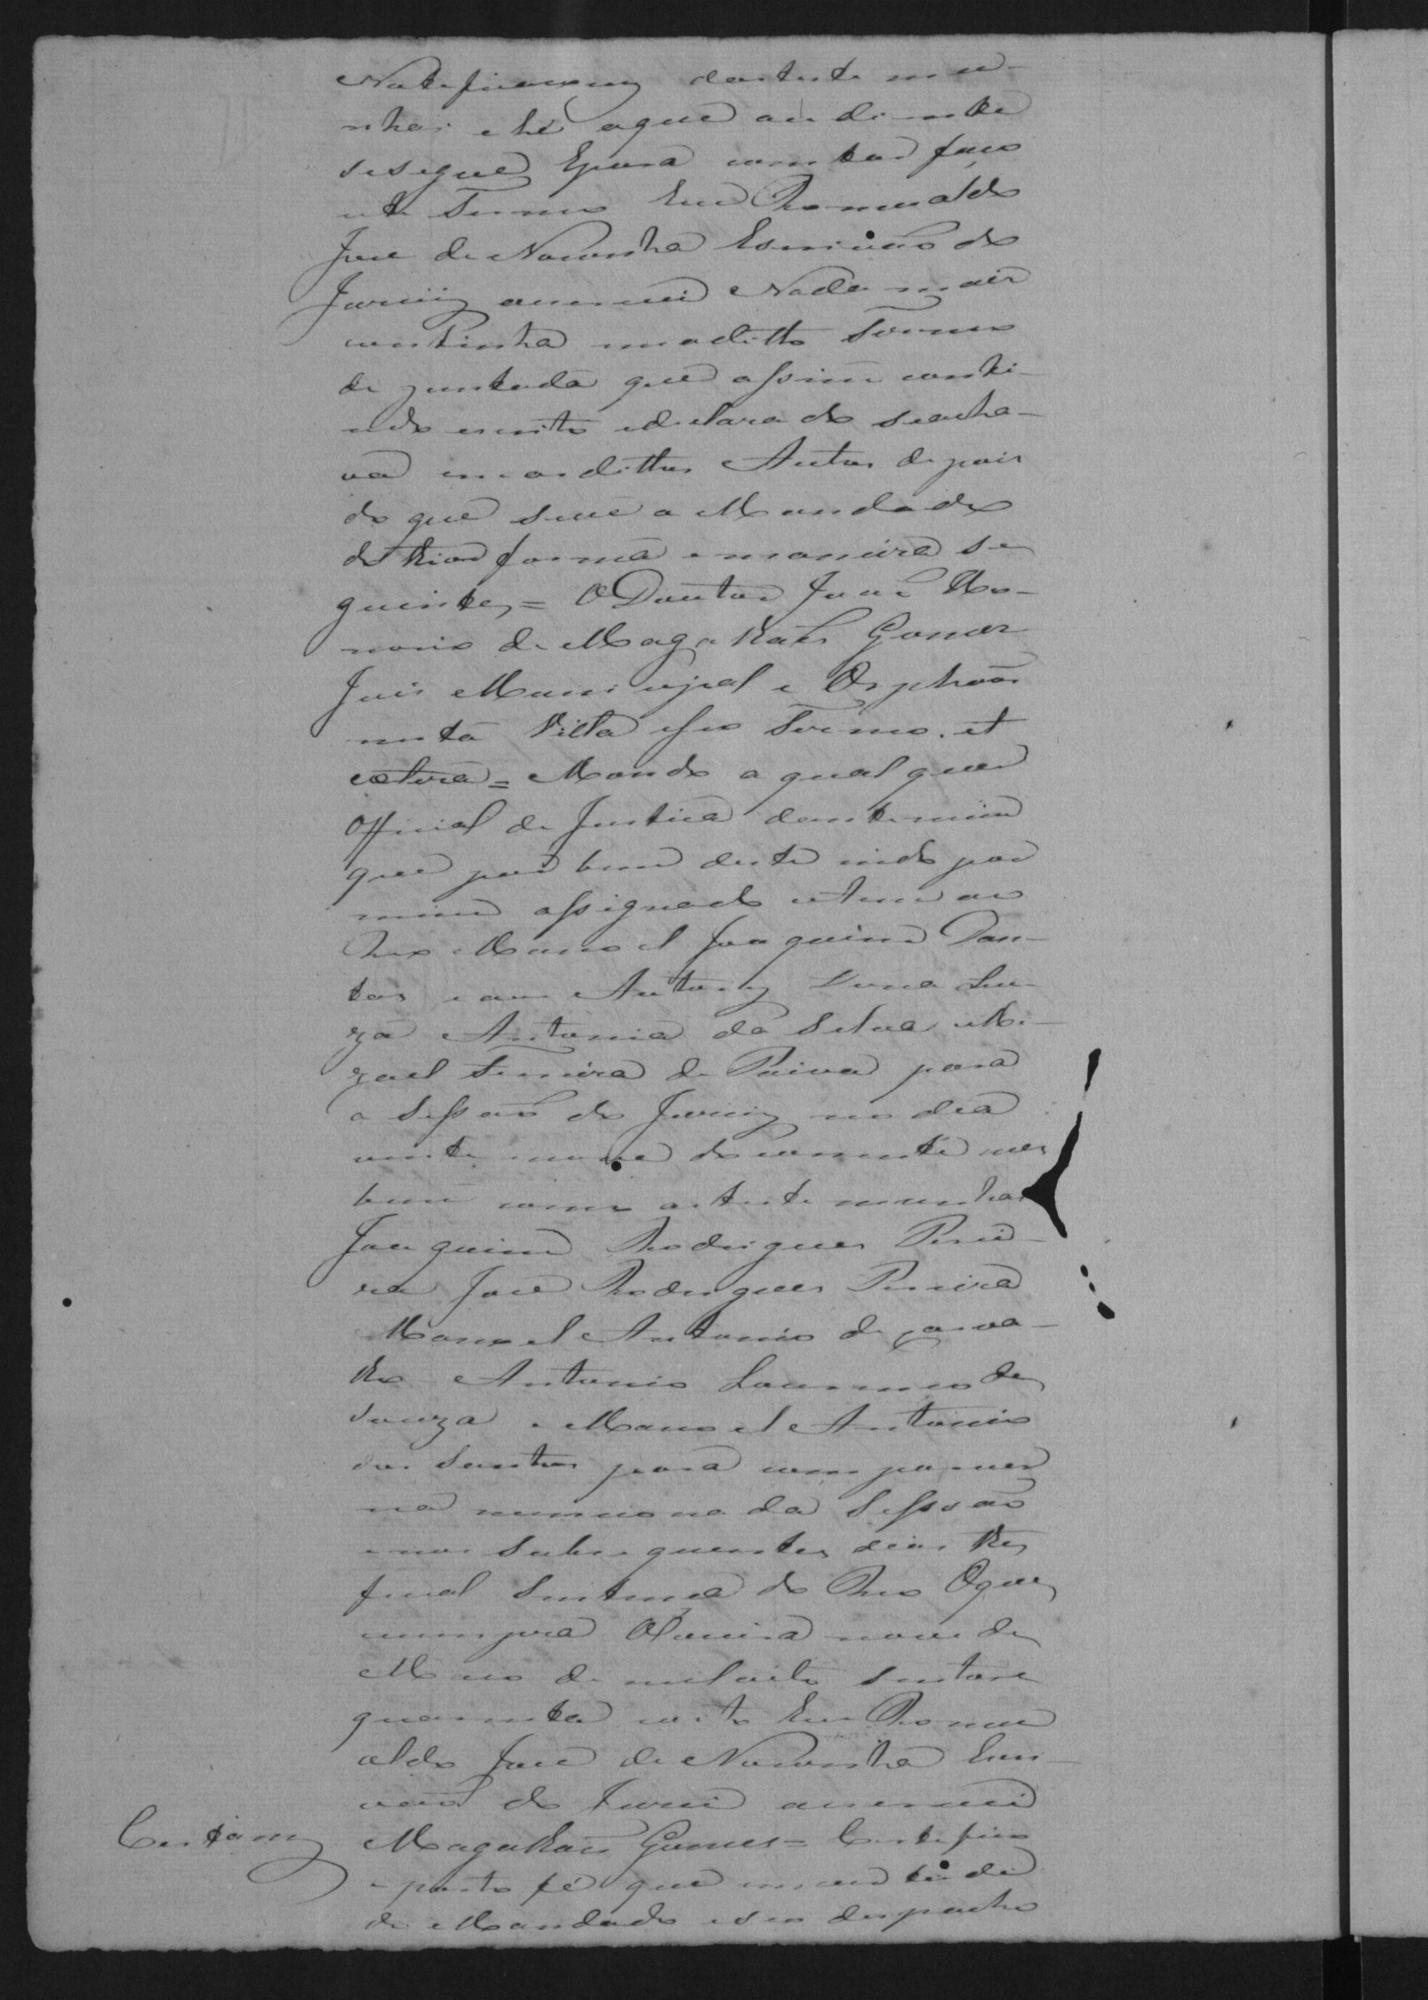 Noteficaçoens dastestemu-
nhas e hé aque aodiante
sesegue Epara constar faço
este Termo Eu Romualdo
Joze de Noronha Escrivaõ do
Jurii escrevi Nada mais
continha nodi​tto Termo
de juntada que assim conti-
udo escrito edeclarado seacha-
va emosdittos Autos depois
do que seve o Mandado
do theor forma emaneira se-
guinte = O Doutor Joaõ Ho-
norio de Magalhães Gomes
Juis Municipal e Orphaõs
nesta Villa eseo Termo. et
cætera = Mando a qual quer
Official de Justica deste meu
que por bem deste indo por
mim assignado citem ao
Reo Manoel Joaquim Dan-
tas e aos Autores Dona Lui-
za Antonia da Silva e
Ferreira de Paiva para
a Sessaõ do Jurii no dia
vinte nove do corrente mes
bem como as testemunhas
Joaquim Rodrigues Perei-
ra José Rodrigues Pereira
Manoel Antonio de Carva-
lho Antonio Lourenco de
Souza e Manoel Antonio
dos Santos para comparecer
na mencionada Sessaõ
enos Subsequentes dias the
final Sentença do Reo Oque
cumpra nove de
Maio de miloito sentose
quarenta eoito Eu Romu
aldo José de Noronha Escri-
vaõ do Jurii escrevi
Magalhães Gomes = Certefico
eporto fé que em
do Mandado eseo despacho
Certam